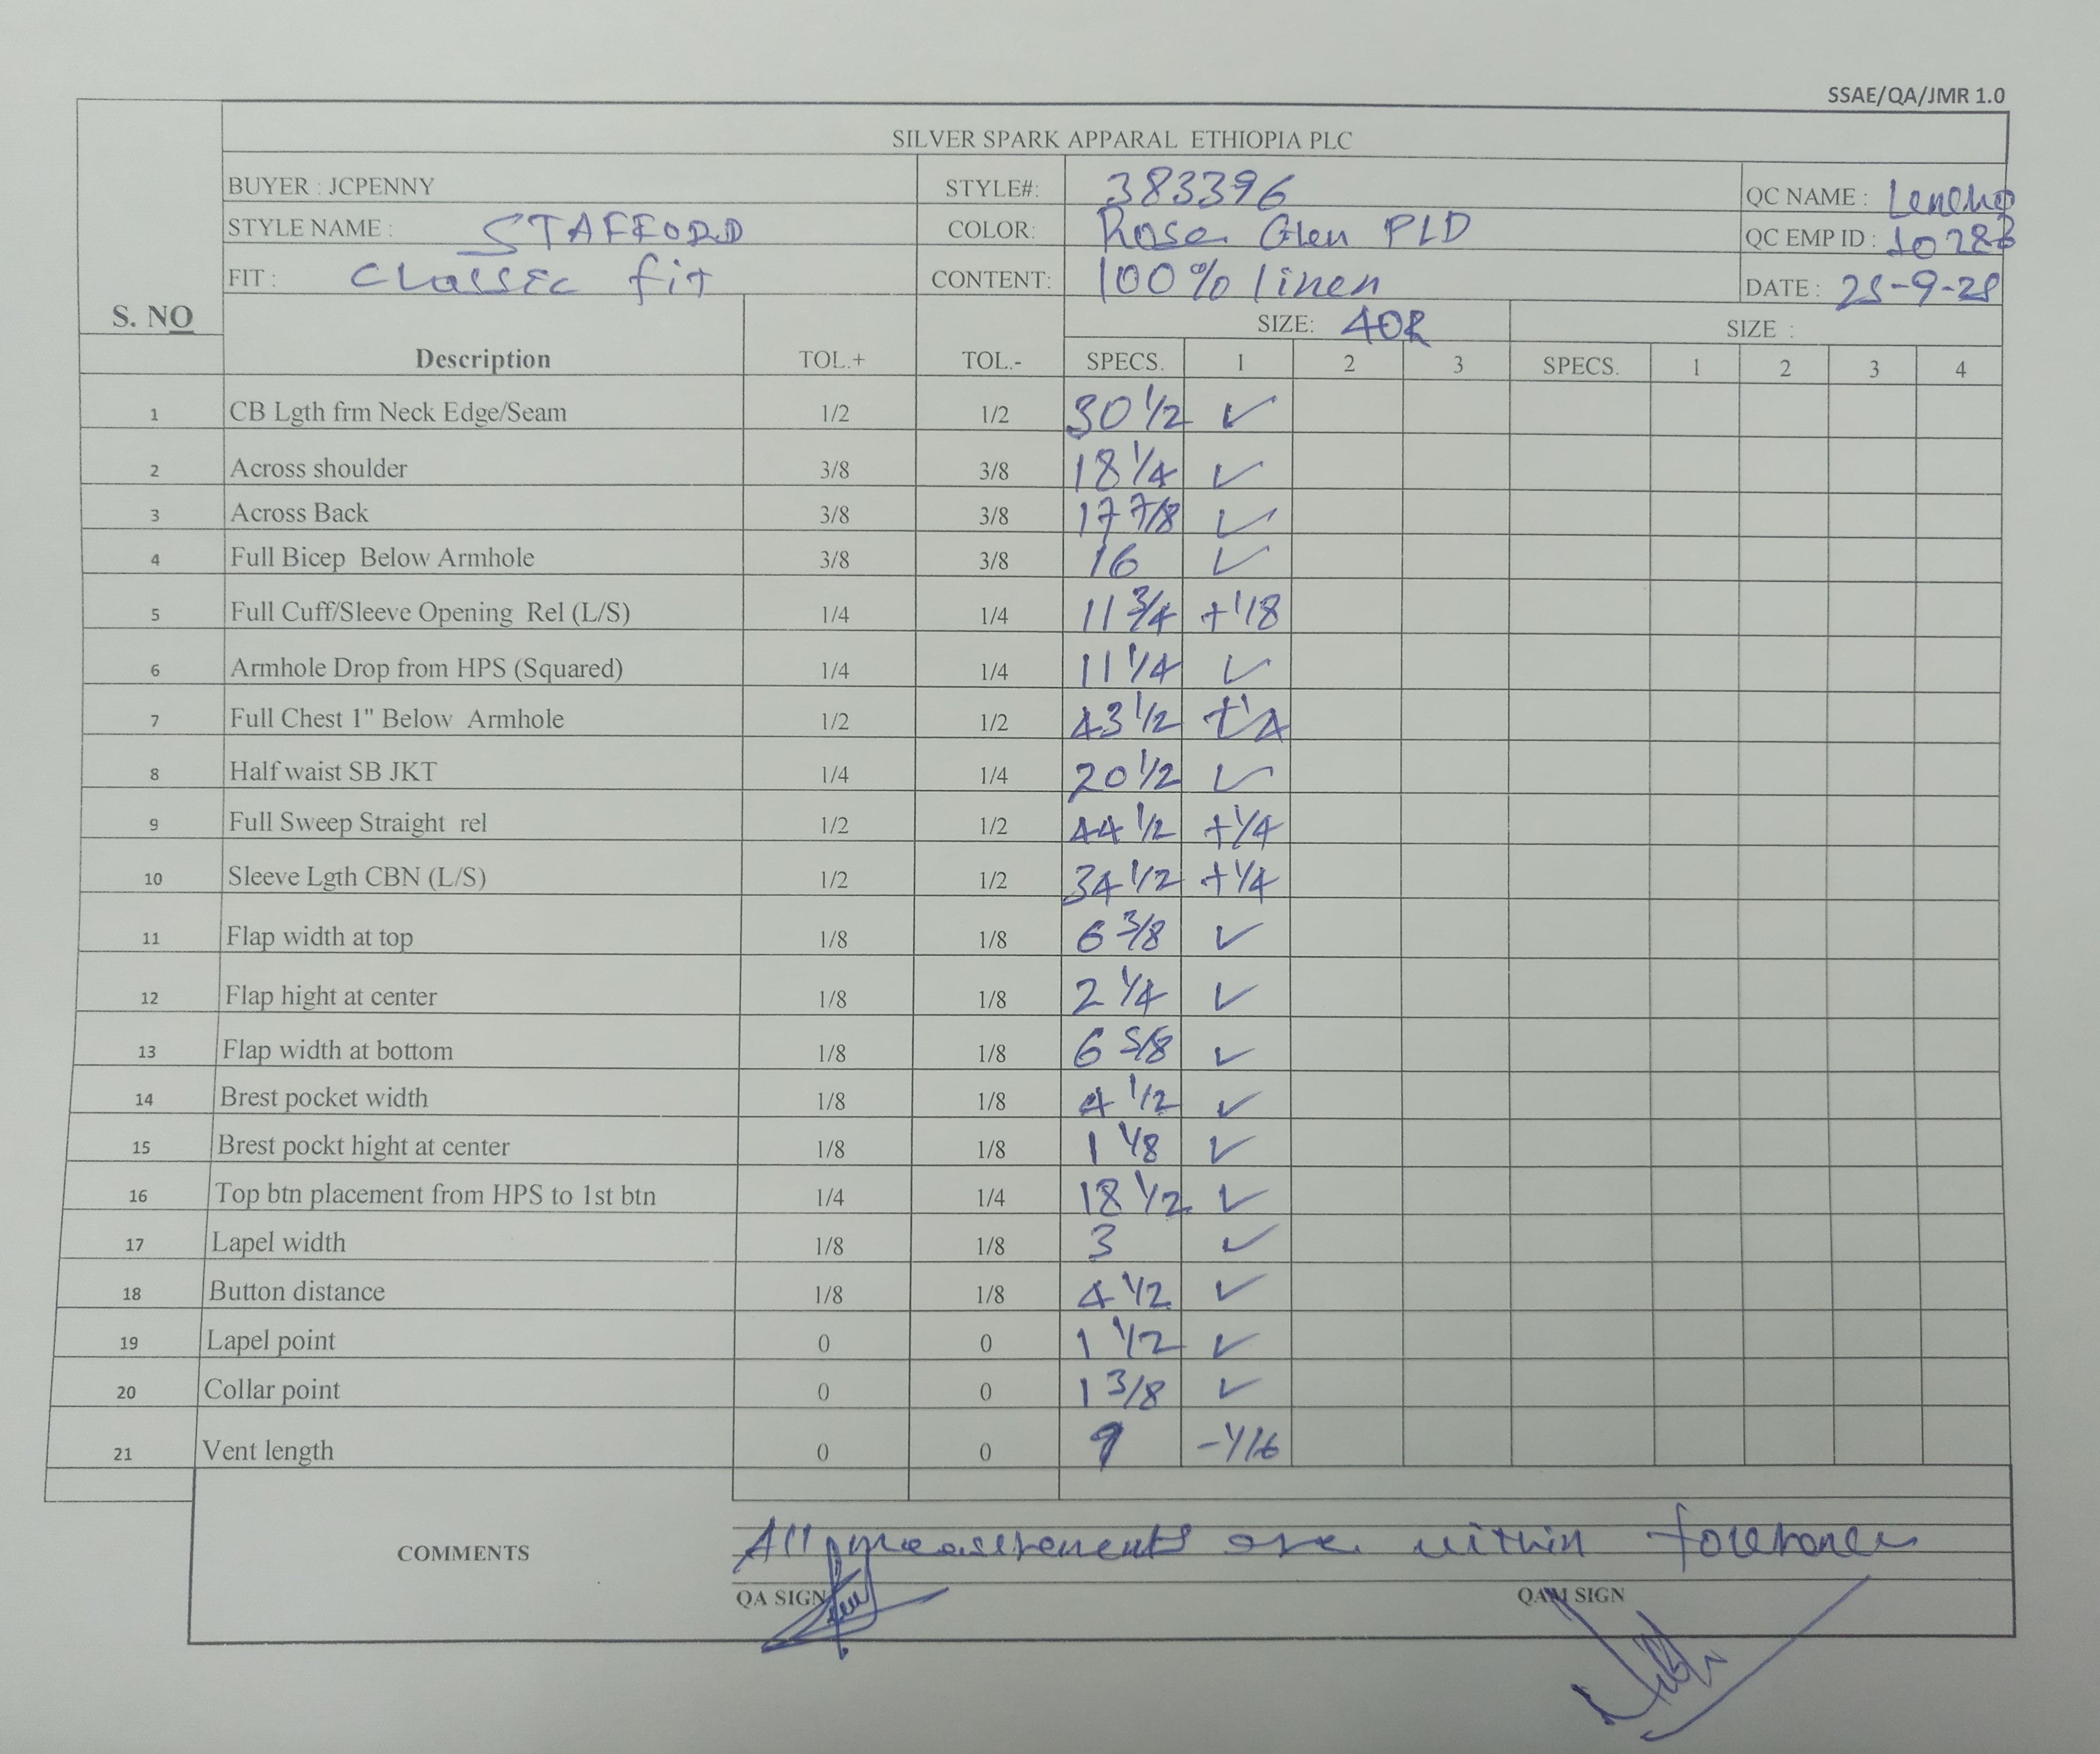 SSAE/QA/JMR 1.0
SILVER SPARK APPARAL ETHIOPIA PLC
BUYER : JCPENNY STYLE#: 383396 QC NAME : Lencho
STYLE NAME : STAFFORD COLOR: Rose Glen PLD QC EMP ID : 10286
FIT : Classic fit CONTENT: 100% linen DATE : 25-9-25
S. NO SIZE: 40R SIZE :
Description TOL.+ TOL.- SPECS. 1 2 3 SPECS. 1 2 3 4
1 CB Lgth frm Neck Edge/Seam 1/2 1/2 30 1/2 ✓
2 Across shoulder 3/8 3/8 18 1/4 ✓
3 Across Back 3/8 3/8 17 7/8 ✓
4 Full Bicep Below Armhole 3/8 3/8 16 ✓
5 Full Cuff/Sleeve Opening Rel (L/S) 1/4 1/4 11 3/4 +1/8
6 Armhole Drop from HPS (Squared) 1/4 1/4 11 1/4 ✓
7 Full Chest 1" Below Armhole 1/2 1/2 43 1/2 +1/4
8 Half waist SB JKT 1/4 1/4 20 1/2 ✓
9 Full Sweep Straight rel 1/2 1/2 44 1/2 +1/4
10 Sleeve Lgth CBN (L/S) 1/2 1/2 34 1/2 +1/4
11 Flap width at top 1/8 1/8 6 3/8 ✓
12 Flap hight at center 1/8 1/8 2 1/4 ✓
13 Flap width at bottom 1/8 1/8 6 5/8 ✓
14 Brest pocket width 1/8 1/8 4 1/2 ✓
15 Brest pockt hight at center 1/8 1/8 1 1/8 ✓
16 Top btn placement from HPS to 1st btn 1/4 1/4 18 1/2 ✓
17 Lapel width 1/8 1/8 3 ✓
18 Button distance 1/8 1/8 4 1/2 ✓
19 Lapel point 0 0 1 1/2 ✓
20 Collar point 0 0 1 3/8 ✓
21 Vent length 0 0 9 -1/16
COMMENTS All measurements are within tolerance
QA SIGN QAM SIGN